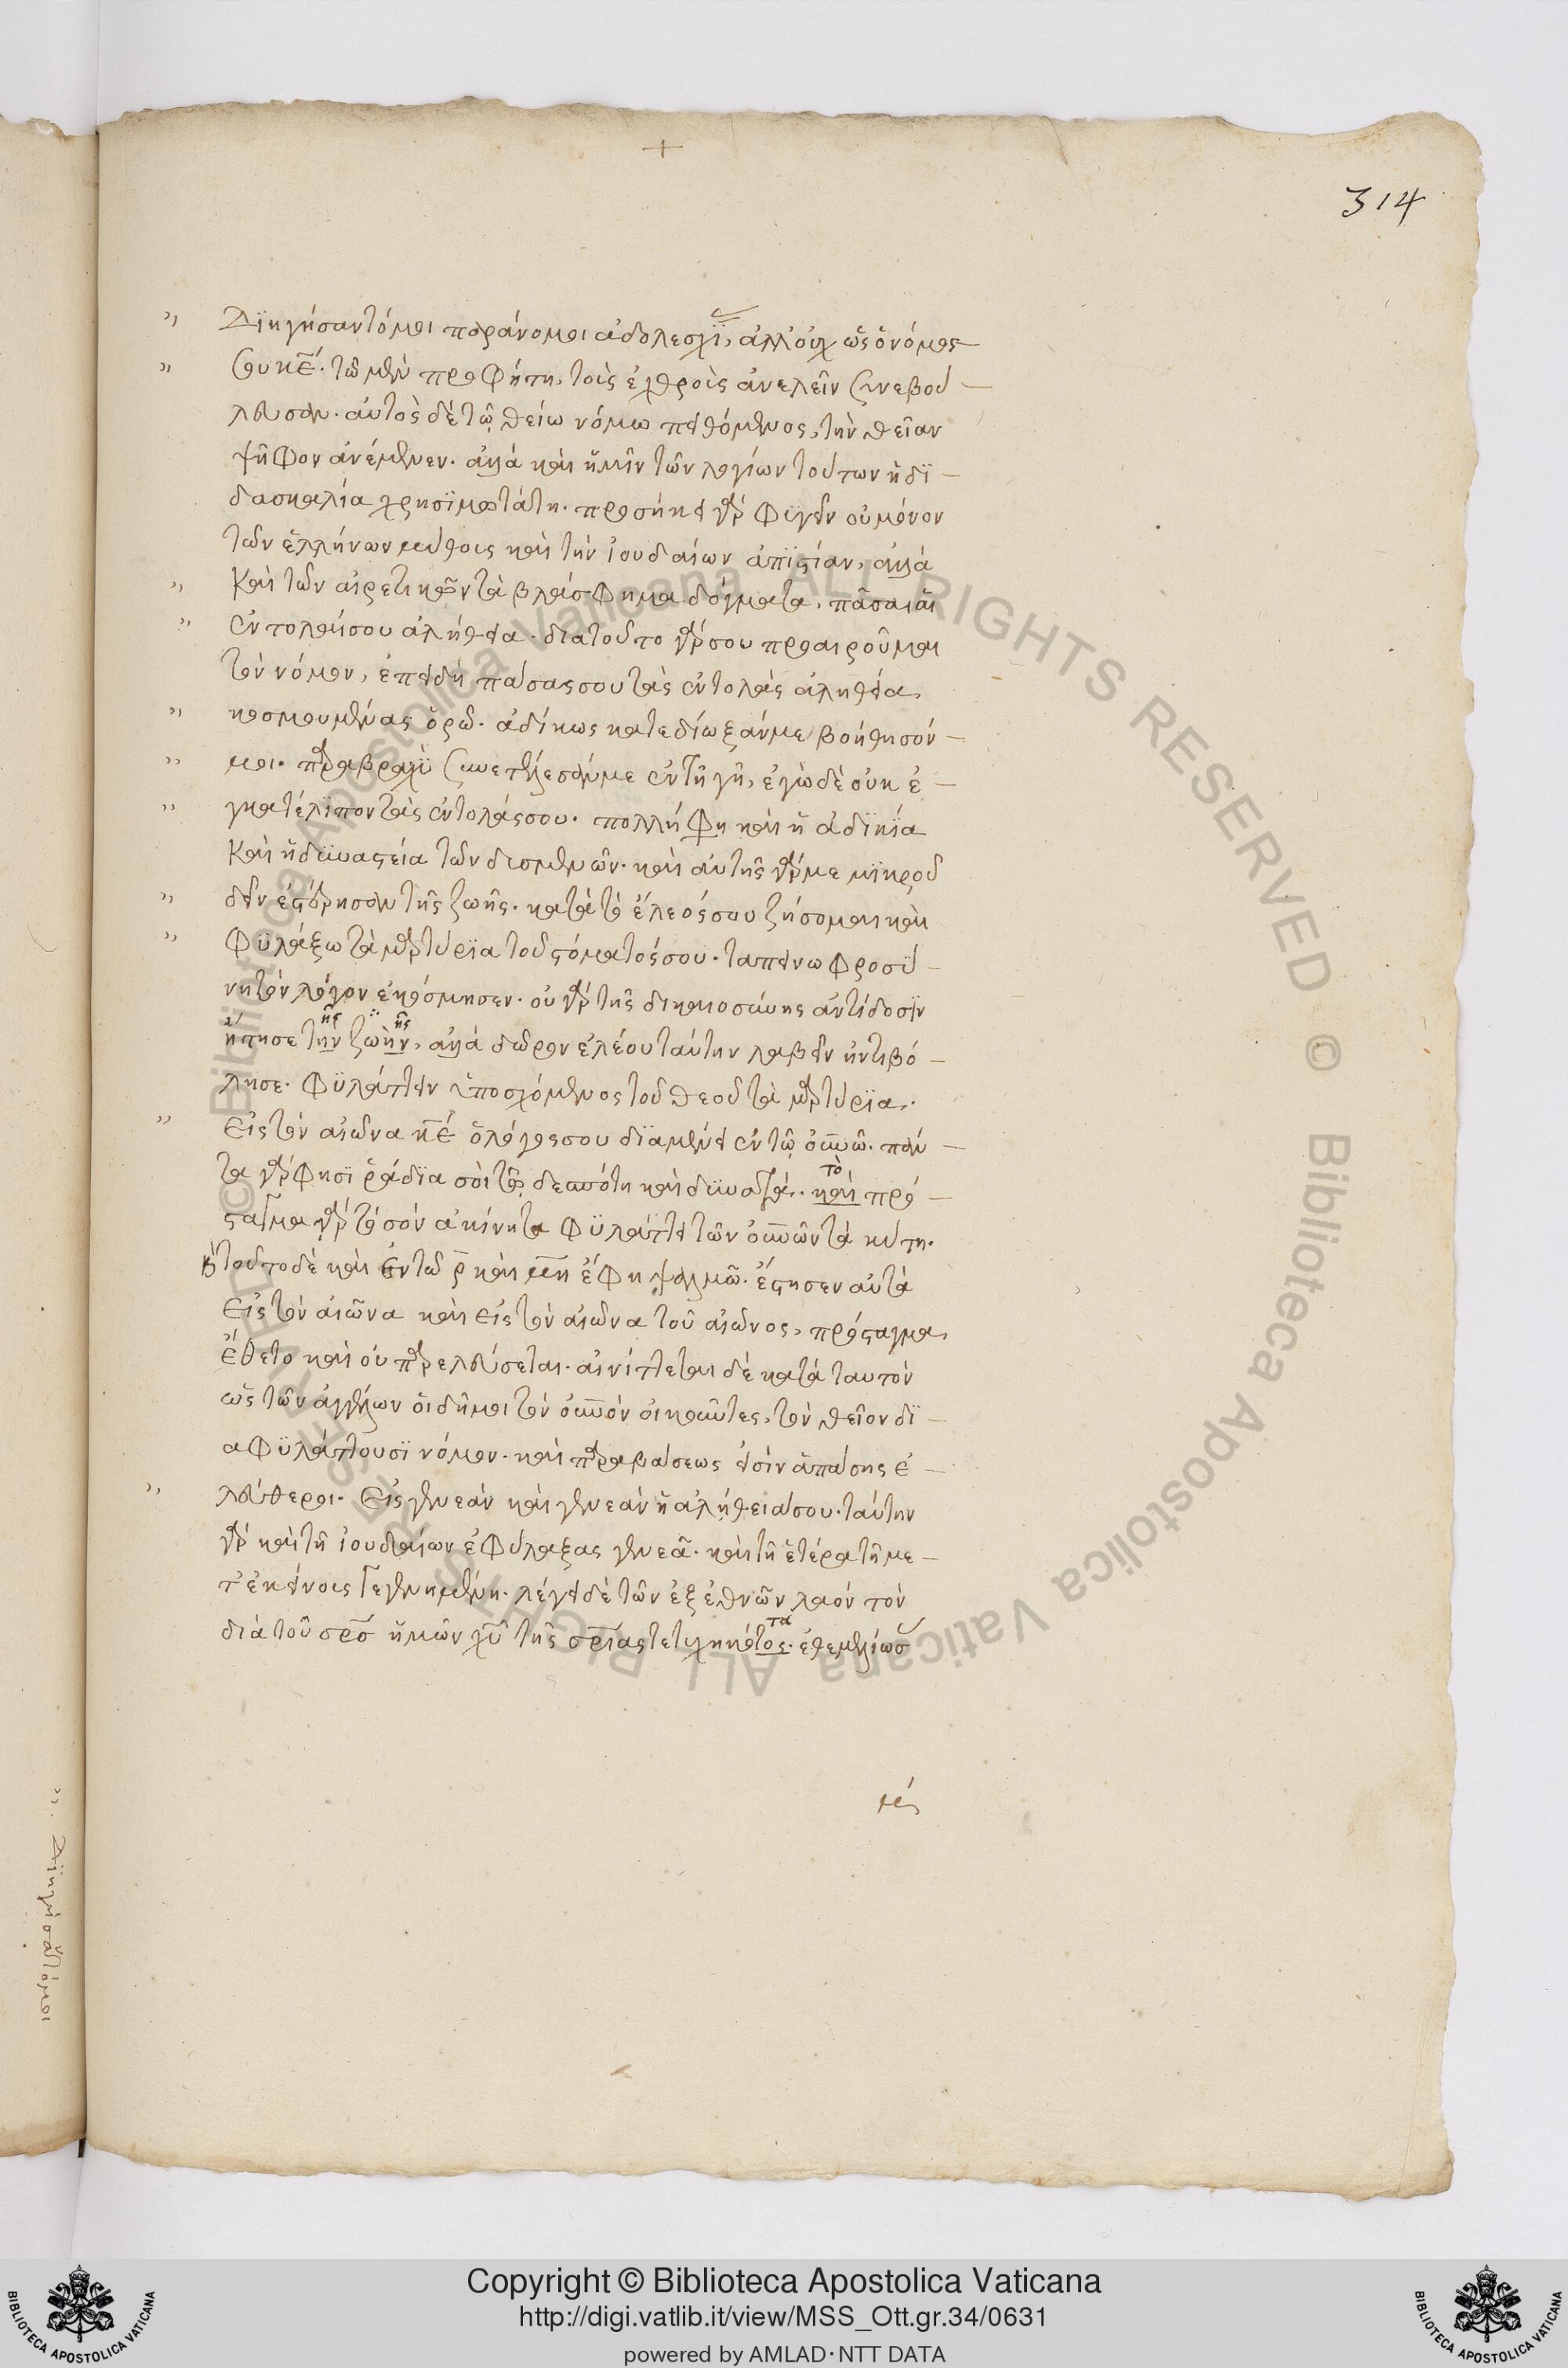 314
Διηγήσαντό μοι παράνομοι ἀδολεσχί, ἀλλ' οὐχ ὡς ὁ νόμος
σου κε̅. τῶ μὲν προφήτη, τοῖς ἐχθροῖς ἀνελεῖν συνεβού
λευσαν. αὐτὸς δὲ τῶ θείω νόμω πειθόμενος, τὴν θείαν
ψῆφον ἀνέμενεν. ἀλλὰ καὶ ἡμῖν τῶν λογίων τούτων ἡ δϊ
δασκαλία χρησϊμοτάτη. προσήκει γὰρ φυγεῖν οὐ μόνον
τῶν ἑλλήνων μύθοις καὶ τὴν ἰουδαίων ἀπϊστίαν, ἀλλὰ
καὶ τῶν αἱρετικῶν τὰ βλάσφημα δόγματα. πᾶσαι αἱ
ἐντολαί σου ἀλήθεια. διατοῦτο γάρ σου προαιροῦμαι
τὸν νόμον, ἐπειδὴ πάσας σου τὰς ἐντολὰς ἀληθεία,
κοσμουμένας ὁρῶ. ἀδίκως κατεδίωξάν με βοήθησόν
μοι. παραβραχὺ συνετέλεσάν με ἐν τῆ γῆ, ἐγὼ δὲ οὐκ ἐ
γκατέλϊπον τὰς ἐντολάς σου. πολλή φη καὶ ἡ ἀδϊκϊα
καὶ ἡ δϋναστεία τῶν δυσμενῶν. καὶ αὐτῆς γάρ με μϊκροῦ
δεῖν ἐστέρησαν τῆς ζωῆς. κατὰ τὸ ἔλεός σου ζήσομαι καὶ
φϋλάξω τὰ μαρτύρϊα τοῦ στόματός σου. ταπεινωφροσύ
νη τὸν λόγον ἐκόσμησεν. οὐ γὰρ τῆς δικαιοσύνης ἀντίδοσϊν
ῆς ῆς
ἤτησε τὴν ζωὴν, ἀλλὰ δῶρον ἐλέου ταύτην λαβεῖν ἠντιβό
λησε. φϋλάττειν ὑποσχόμενος τοῦ θεοῦ τὰ μαρτύρϊα.
Εἰς τὸν αἰῶνα κε̅ ὁ λόγος σου δϊαμένει ἐν τῶ ου̅νω̅. πάν
τὸ
τα γὰρ φησϊ ῥάδϊα σοὶ τῶ δεσπότη καὶ δϋνατά. καὶ πρό
σταγμα γὰρ τὸ σὸν ἀκίνητα φϋλάττει τῶν ου̅νῶν τὰ κύτη.
τοῦτο δὲ καὶ ἐν τῶ ρ̅ καὶ μ̅η ἔφη ψαλμῶ. ἔστησεν αὐτὰ
εἰς τὸν αἰῶνα καὶ εἰς τὸν αἰῶνα τοῦ αἰῶνος, πρόσταγμα,
ἔθετο καὶ οὐ παρελεύσεται. αἰνίττεται δὲ κατὰ ταυτὸν
ὡς τῶν ἀγγέλων οἱ δῆμοι τὸν ου̅νὸν οἰκοῦντες, τὸν θεῖον δϊ
αφϋλάττουσϊ νόμον. καὶ παραβάσεως εἰσὶν ἁπάσης ἐ
λεύθεροι. Εἰς γενεὰν καὶ γενεὰν ἡ ἀλήθειά σου. ταύτην
γὰρ καὶ τῆ ἰουδαίων ἐφύλαξας γενεᾶ. καὶ τῆ ἑτέρα τῆ με
τ' ἐκείνοις γεγενημένη. λέγει δὲ τῶν ἐξ ἐθνῶν λαόν τὸν
τα
διὰ τοῦ σρ̅σ ἡμῶν χυ̅ τῆς σρ̅ίας τετυχηκότος. ἐθεμελίωσ